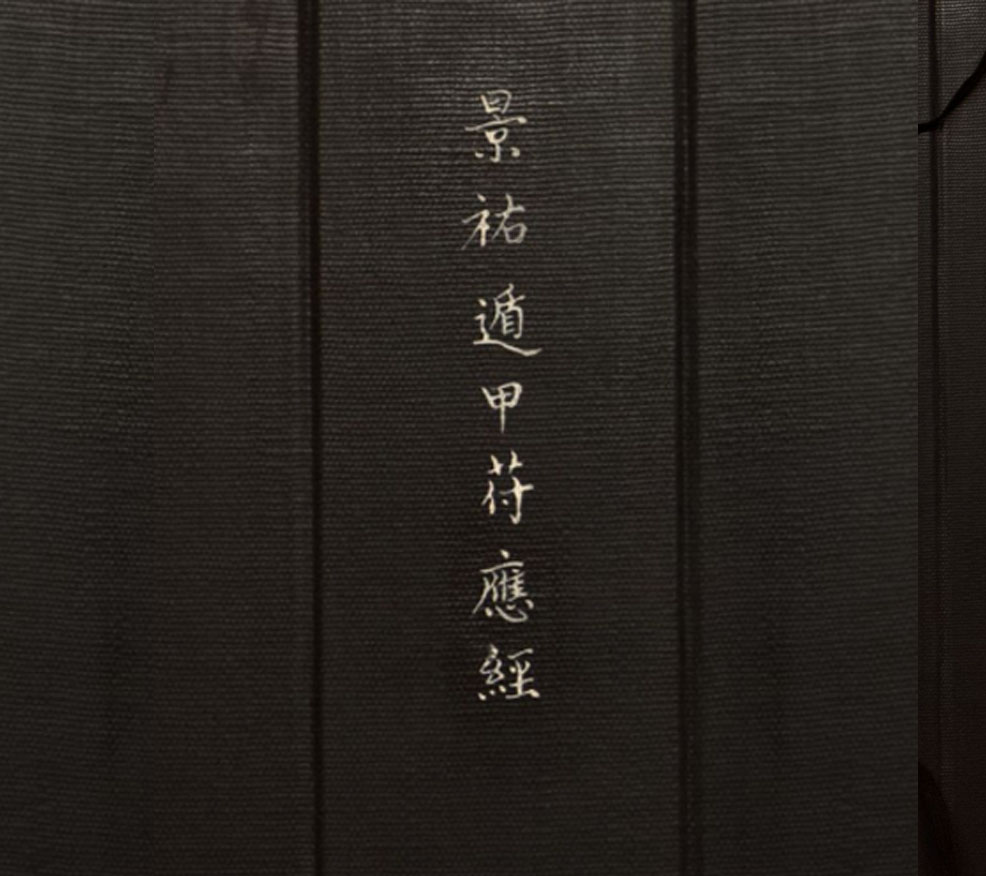 景祐遁甲符應經